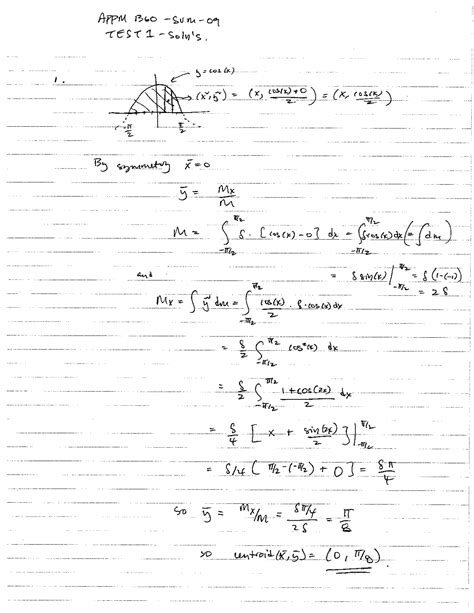 APPM 1360 - SUM - 09
TEST 1 - Soln's.
1.
y = cos(x)
(x̃, ỹ) = (x, (cos(x)+0)/2) = (x, cos(x)/2)
-π/2 π/2
By symmetry x̄ = 0
ȳ = Mx/M
M = ∫_{-π/2}^{π/2} δ · [cos(x) - 0] dx = ∫_{-π/2}^{π/2} δcos(x) dx (= ∫ dm)
= δ sin(x) |_{-π/2}^{π/2} = δ (1-(-1))
= 2δ
and
Mx = ∫ ỹ dm = ∫_{-π/2}^{π/2} cos(x)/2 · δ · cos(x) dx
= δ/2 ∫_{-π/2}^{π/2} cos²(x) dx
= δ/2 ∫_{-π/2}^{π/2} (1 + cos(2x))/2 dx
= δ/4 [ x + sin(2x)/2 ] |_{-π/2}^{π/2}
= δ/4 [ π/2 - (-π/2) + 0 ] = δπ/4
so ȳ = Mx/M = (δπ/4)/(2δ) = π/8
so centroid (x̄, ȳ) = (0, π/8).